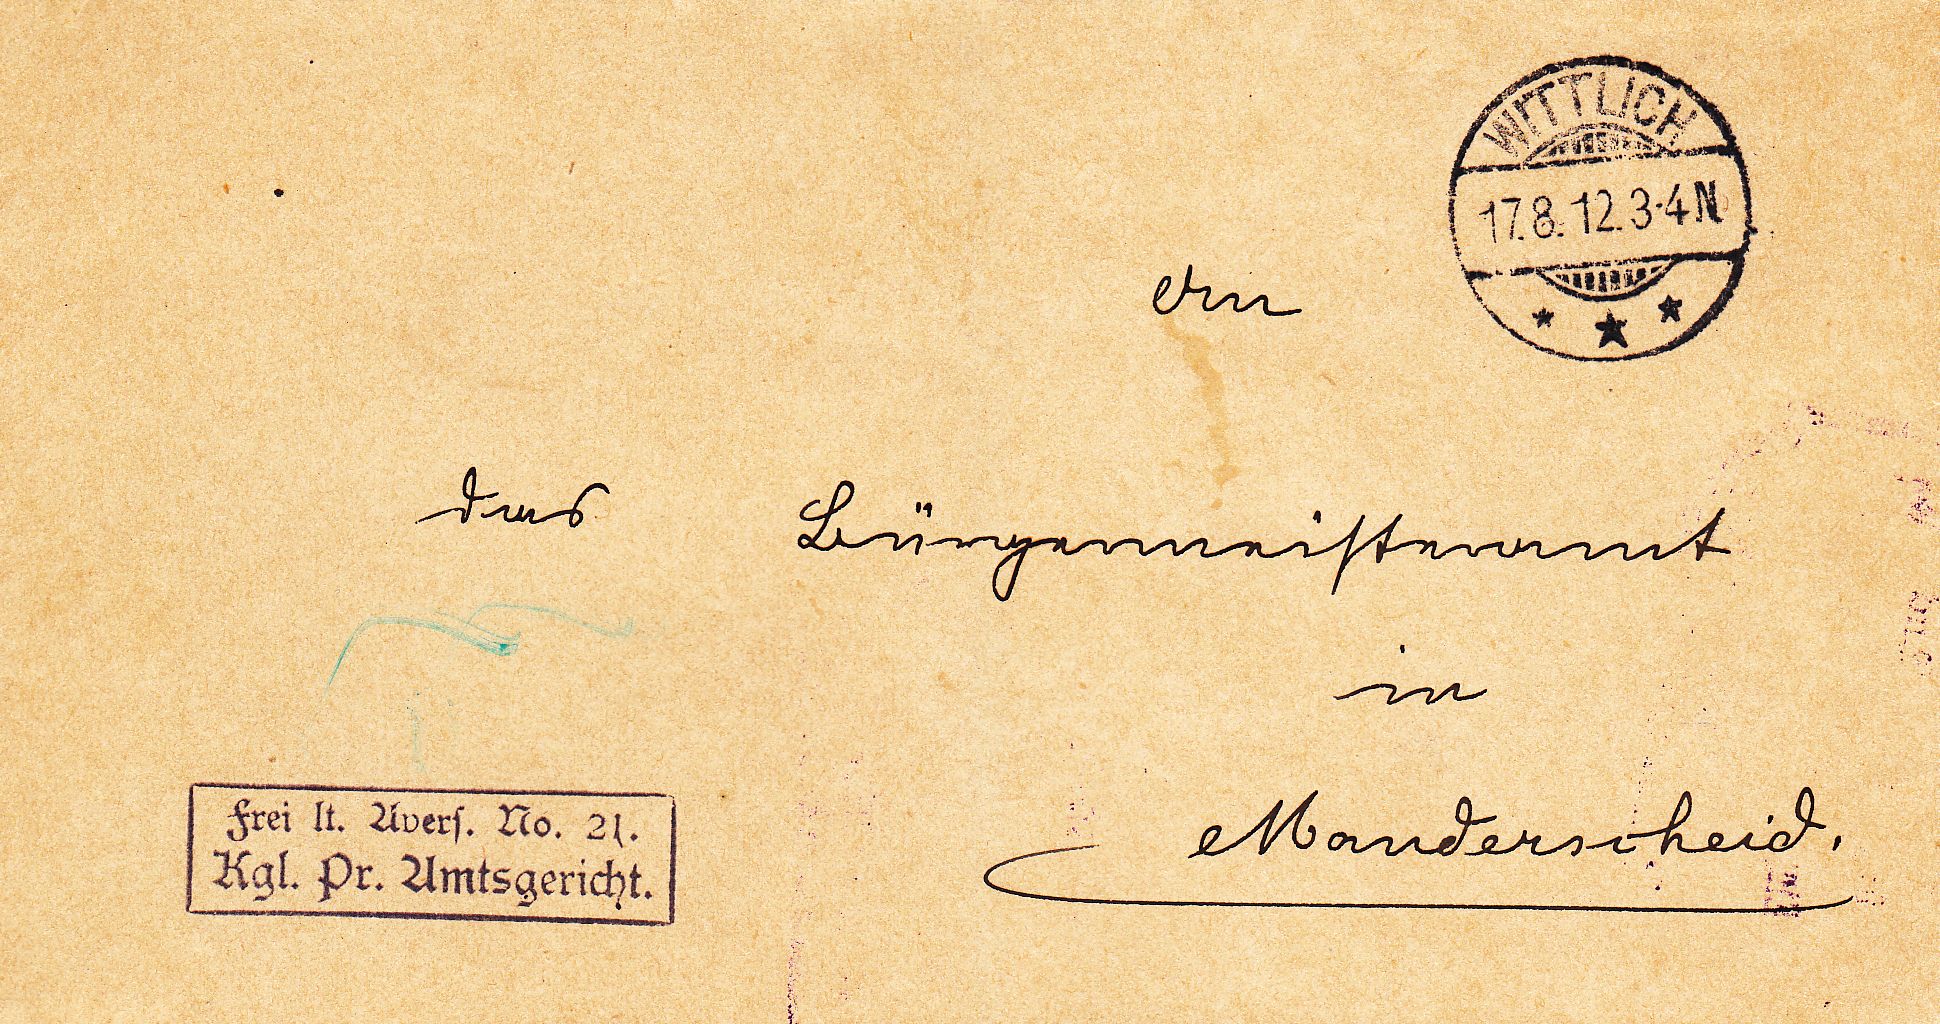 WITTLICH
17.8.12.3-4N
An
das Bürgermeisteramt
in
Manderscheid.
Frei lt. Avers. No. 21.
Kgl. Pr. Amtsgericht.